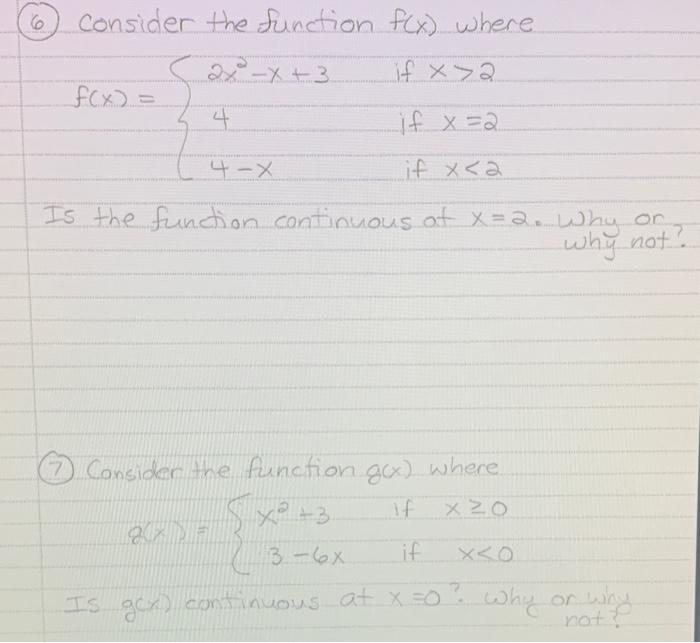 6 Consider the function f(x) where
2x²-x+3 if x>2
f(x) =
4 if x=2
4-x if x<2
Is the function continuous at x=2. Why or
why not?
7 Consider the function g(x) where
x²+3 if x≥0
g(x) =
3-6x if x<0
Is g(x) continuous at x=0? Why or why
not?